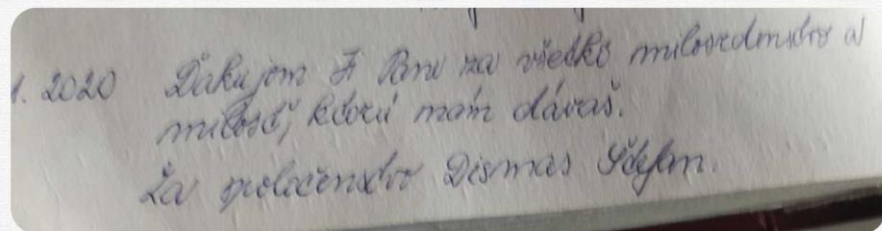 1. 2020 Ďakujem Ti Pane za všetko milosrdenstvo a
milosť, ktorú nám dávaš.
Za spoločenstvo Dismas Štefan.